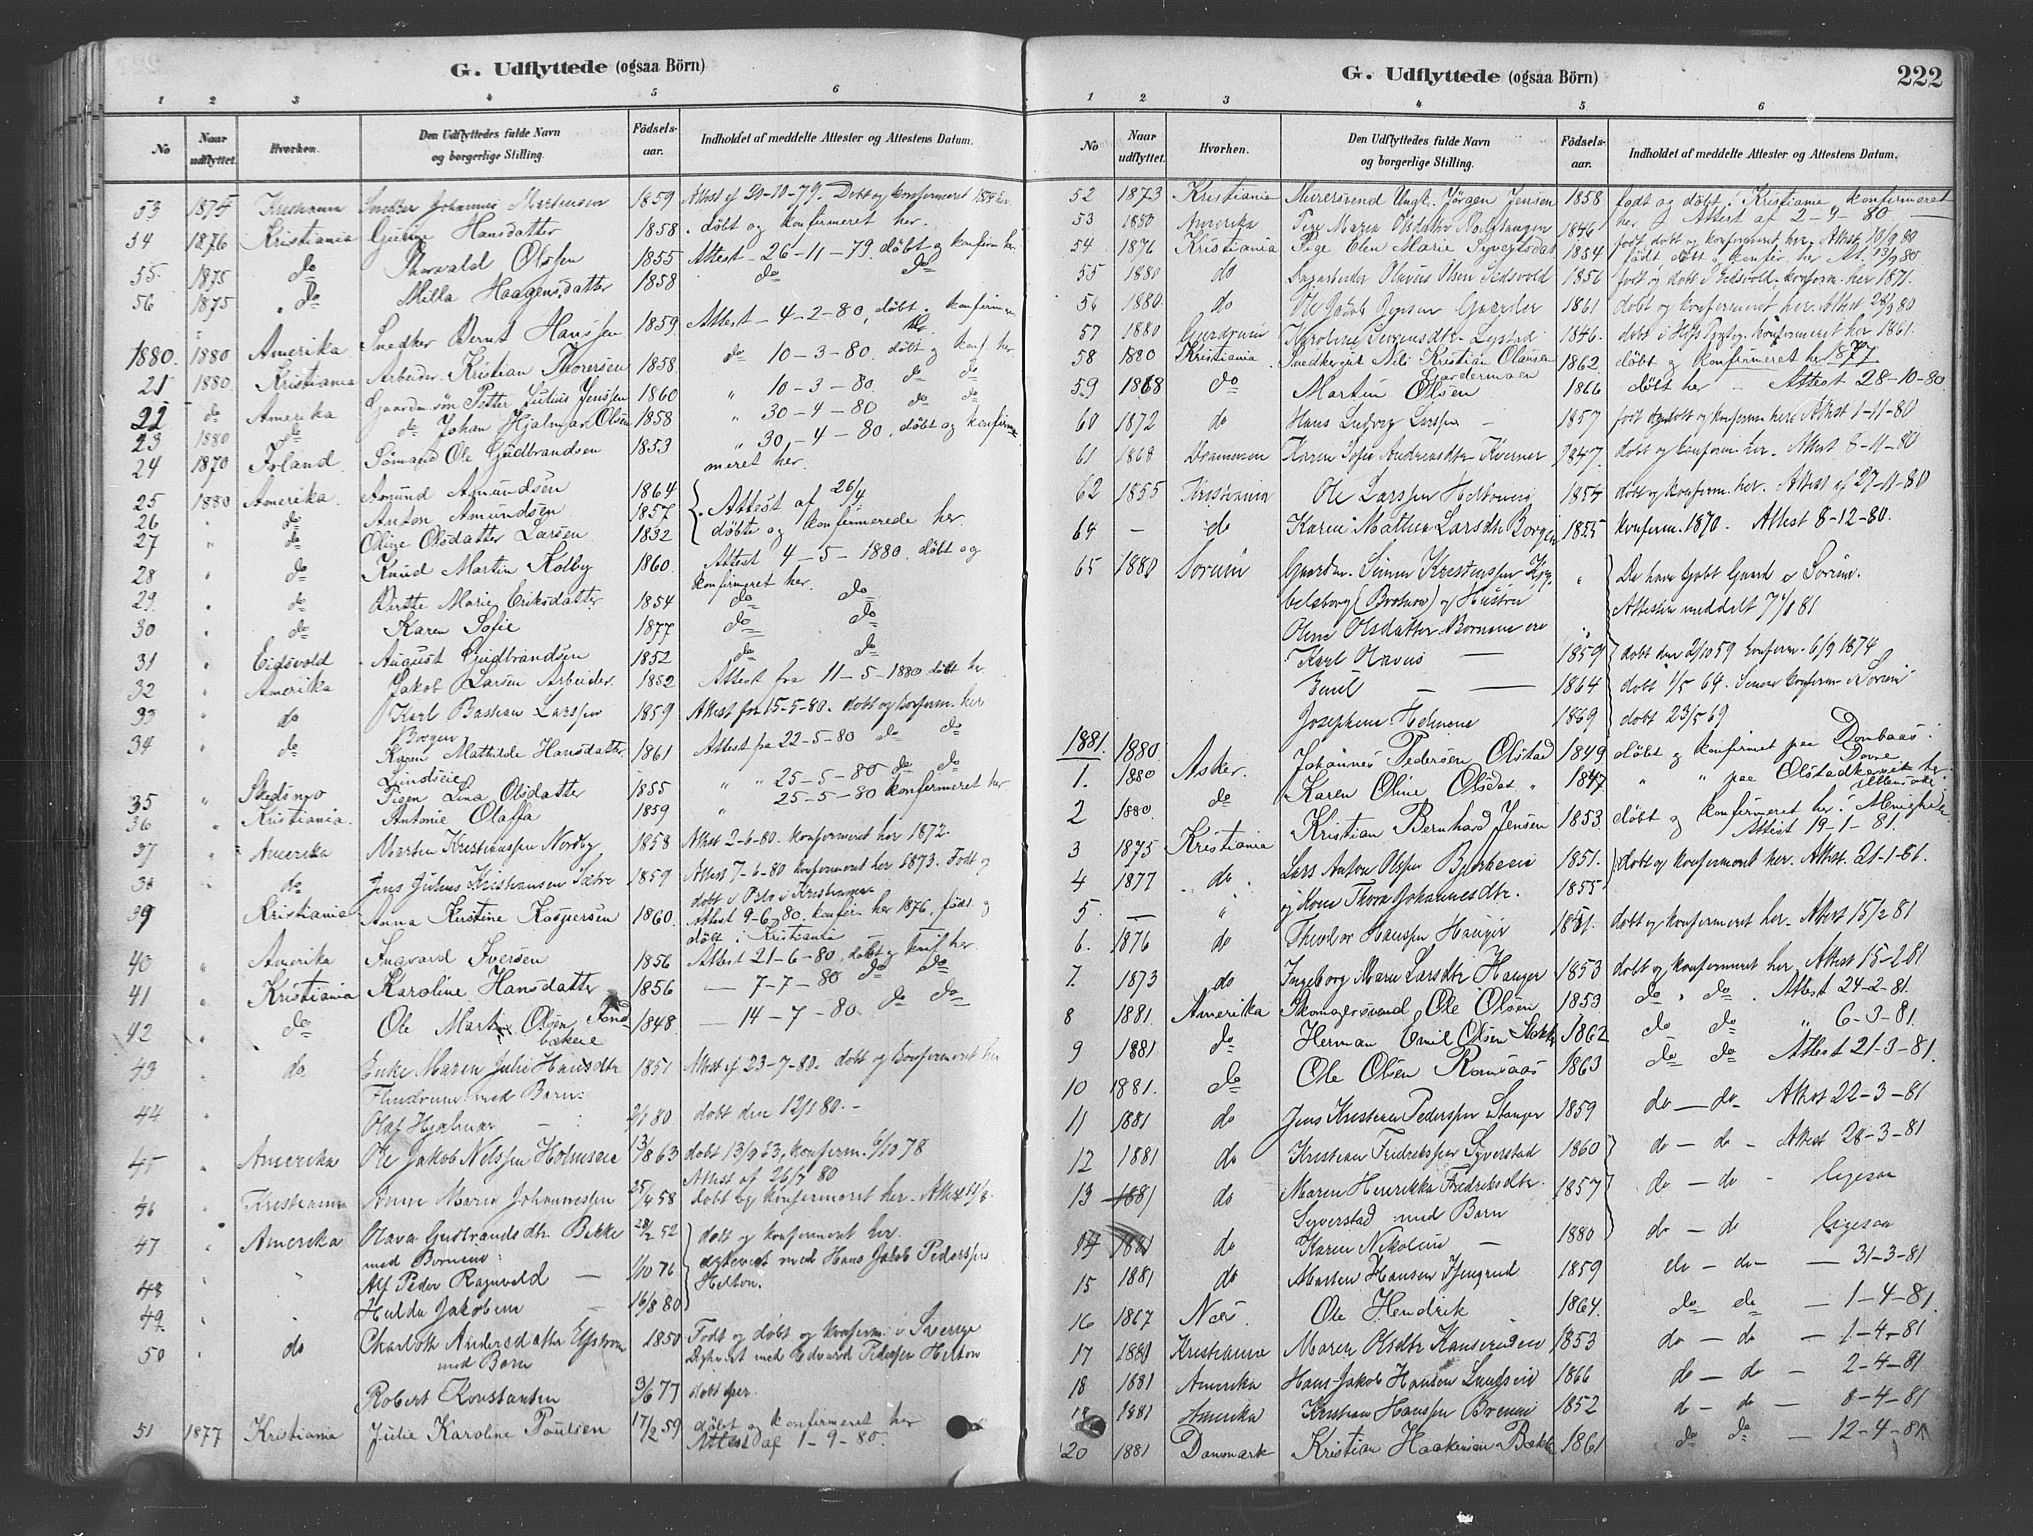 G. Udflyttede (ogsaa Börn)
1 2 3 4 5 6
No Naar udflyttet. Hvorhen. Den Udflyttedes fulde Navn og borgerlige Stilling. Födsels-aar. Indholdet af meddelte Attester og Attestens Datum.
53 1875 Kristiania Snedker Johannes Mortensen 1859 Attest af 20-10-79. Döbt og konfirmeret 1874 her.
54 1876 Kristiania Gurine Hansdatter 1858. döbt og konfirmeret her.
55 1875 do Thorvald Olssen 1855 Attest - 26-11-79. döbt og konfirm her
56 1875 do Milla Haagensdatter 1858 do do
1880. 1880 Amerika Snedker Bernt Hanssen 1859 Attest - 4-2-80, döbt. konfirmeret her.
21 1880 Kristiania Arbeider Kristian Thorersen 1858. do 10-3-80. döbt og konf her.
22 do Amerika Gaardm.søn Petter Julius Jenssen 1860 " 10-3-80 do do
23 1880 do do Johan Hjalmar Olsen 1858 " 30-4-80 do do
24 1870 Irland Sömand Ole Gudbrandsen 1853 " 30-4-80, döbt og konfirmeret her.
25 1880 Amerika. Amund Amundsen 1864 Attest af 26/4
26 " do Anton Amundsen 1857 döbte og konfirmerede her.
27 " do Oline Olsdatter Larsen 1832
28 " do Knud Martin Kolby 1860. Attest 4-5-1880. döbt og konfirmeret her.
29. " do Berthe Marie Eriksdatter 1854 do do
30 " do Karen Sofie 1877 do do
31 " Eidsvold August Gudbrandsen 1852 do do
32 " Amerika Jakob Larsen Arbeider. 1852 Attest fra 11-5-1880 döbt her.
33 " do Karl Bastian Larssen Borgen 1859 Attest fra 15-5-80. dobt og konfirm. her
34 " do Karen Mathilde Hansdatter Lundseie 1861 Attest fra 22-5-80 do do
35 " Skedsmo Pigen Lina Olsdatter 1855 " 25-5-80 do do
36 " Kristiania. Antonie Olaffa 1859 " 25-5-80 konfirmeret her
37 " Amerika Morten Kristianssen Nordby 1858 Attest 2-6-80. konfirmeret her 1872.
38 " do Jens Julius Kristiansen Sætre 1859 Attest 7-6-80 konfirmeret her 1873. Født og döbt i Oslo i Kristiania
39 " Kristiania Anna Kristine Kaspersen 1860. Attest 9-6-80. konfir. her 1876, født og döbt i Kristiania
40 " Amerika Ingvard Iversen 1856 Attest 21-6-80, döbt og konf her.
41 " Kristiania Karoline Hansdatter 1856 — 7-7-80 do do
42 " do Ole Martin Olsen Sandbækeie 1848 — 14-7-80. do do
43 " do Enke Maren Julie Hansdtr 1851 Attest af 23-7-80. dobt og konfirmeret her
Flindrum med Barn:
44 " Olaf Hjalmar 80 dobt den 12/1 80. -
45 " Amerika Ole Jakob Nilssen Holmseie 63 dobt 13/9 63, konfirm. 6/10 78 Attest af 26/7 80
46 " Kristiania Anne Marie Johannessen 25/4 58 dobt og konfirmeret her. Attest
47 " Amerika Olava Gudbrandsdtr Bakke 28/2 52 dobt og konfirmeret her.
med Bornene: dgteviet med Hans Jakob Pederssen Helton.
48 " Alf Peder Ragnvald 1/10 76
49. " Hulda Jakobine 16/8 80
50 do Charlotte Andersdatter Elfstrøm med Barn 1850 Født og döbt og konfirm. i Sverige dgteviet med Edvard Pedersen Helton
Robert Konstantin 3/6 77 dobt her.
51 1877 Kristiania Julie Karoline Poulsen 17/2 59 döbt og konfirmeret her Attest af 1-9-80.
G. Udflyttede (ogsaa Börn) 222
1 2 3 4 5 6
No Naar udflyttet. Hvorhen. Den Udflyttedes fulde Navn og borgerlige Stilling. Födsels-aar. Indholdet af meddelte Attester og Attestens Datum.
52 1873 Kristiania Murersvend Ungk. Jörgen Jensen 1858 født og döbt i Kristiania konfirmeret her. Attest af 2-9-80 —
53 1880 Amerika Pige Maren Olsdatter 1846 født, dobt og konfirmeret her, Attest 10/9 80
54 1876 Kristiania Pige Elen Marie Syvertsdat 1854 født døbt og konfir. her At. 13/9 80
55 1880 do Olavus Olsen Eidsvold 1856 født og dobt i Eidsvold. konfirm. her 1871.
56 1880. do Ole Jakob Jensen Gaarder 1861 dobt og konfirmeret her. Attest 28/9 80
57 1880 Gjerdrum Karoline Sørensdtr Lystad 1846. konfirmeret her 1861.
58 1880 Kristiania Snedkergut Nils Kristian Olausen Gardermoen 1862. döbt og konfirmeret her 1877
59 1868 do Martin Olsen 1866 döbt her — Attest 28-10-80
60 1872 do Hans Ludvig Larssen - 1857 født og dobt og konfirm her. Attest 1-11-80
61 1868 Drammen Karen Sofie Andreasdtr Kverner 1847. dobt og konfirm. her. Attest 8-11-80
62 1855 Kristiania Ole Larssen Heltoneie 1854 dobt og konfirm. her. Attest af 27-11-80
64 — do Karen Mathea Larsdtr Borgen 1855 konfirm. 1870. Attest 8-12-80.
65 1880 Sorum Gaardm. Simen Kristenssen (Brotnov) og Hustru " De have kjobt Gaard i Sørum. Attester meddelt 7/1 81
Oline Olsdatter. Bornene ere
Karl Olavus — 1859 dobt den 2/10 59 konfirm. 6/9 1874
Emil — — 1864 dobt 1/5 64. Senere konfirm i Sørum
Josephine Helmine 1869 dobt 23/5 69
1881. 1880 Asker. Johannes Pedersen Olstad 1849 döbt og konfirmet paa Dombaas. Dovre.
1. 1880 do Karen Oline Olsdat " 1847 " " paa Olstadkirke her.
2 1880. Kristiania Kristian Bernhard Jensen 1853 döbt og konfirmeret her i Menighed. Attest 19-1-81.
3 1875 Kristiania
4 1877 do. Lars Anton Olssen Bjerkeeie 1851. dobt og konfirmeret her. Attest 21-1-81.
5. — " og Kone Thora Johannesdtr. 1855
6. 1876 do Theodor Hanssen Hauger 1851. dobt og konfirmeret her. Attest 15/2 81
7. 1873 do Ingeborg Marie Larsdtr Hauger 1853 dobt og konfirmeret her. Attest 15-2-81
8 1881. Amerika Skomagersvend Ole Olsen 1853 do. do. Attest 24-2-81.
9 1881 do Herman Emil Olsen 1862 do do " 6-3-81.
10 1881. do Ole Olsen Romsaas 1863 do do Attest 21-3-81.
11 1881 do Jens Kristian Pederssen Stanger 1859 do — do - Attest 22-3-81
12 1881 do Kristian Fredrikssen Syverstad 1860 do — do - Attest 28-3-81
13 1881 do Maren Henrikka Fredriksdtr. Syverstad med Barn 1857 do — do - ligesaa
14 1881 do Karen Nikoline — 1880 do — do ligesaa
15 1881 do Morten Hansen Tjengrud 1859 do — do — — 31-3-81
16 1867 Næs. Ole Hendrik 1864. do do — 1-4-81.
17 1881 Kristiania Maren Olsdtr Kanserudeie 1853 do — do — 1-4-81
18 1881 Amerika Hans Jakob Hansen Lundseie 1866 do — do — 2-4-81
1881 Amerika Kristian Hanssen 1852 do — do — 8-4-81
20 1881 Danmark Kristian Haakensen Bakke 1861 do do — 12-4-81